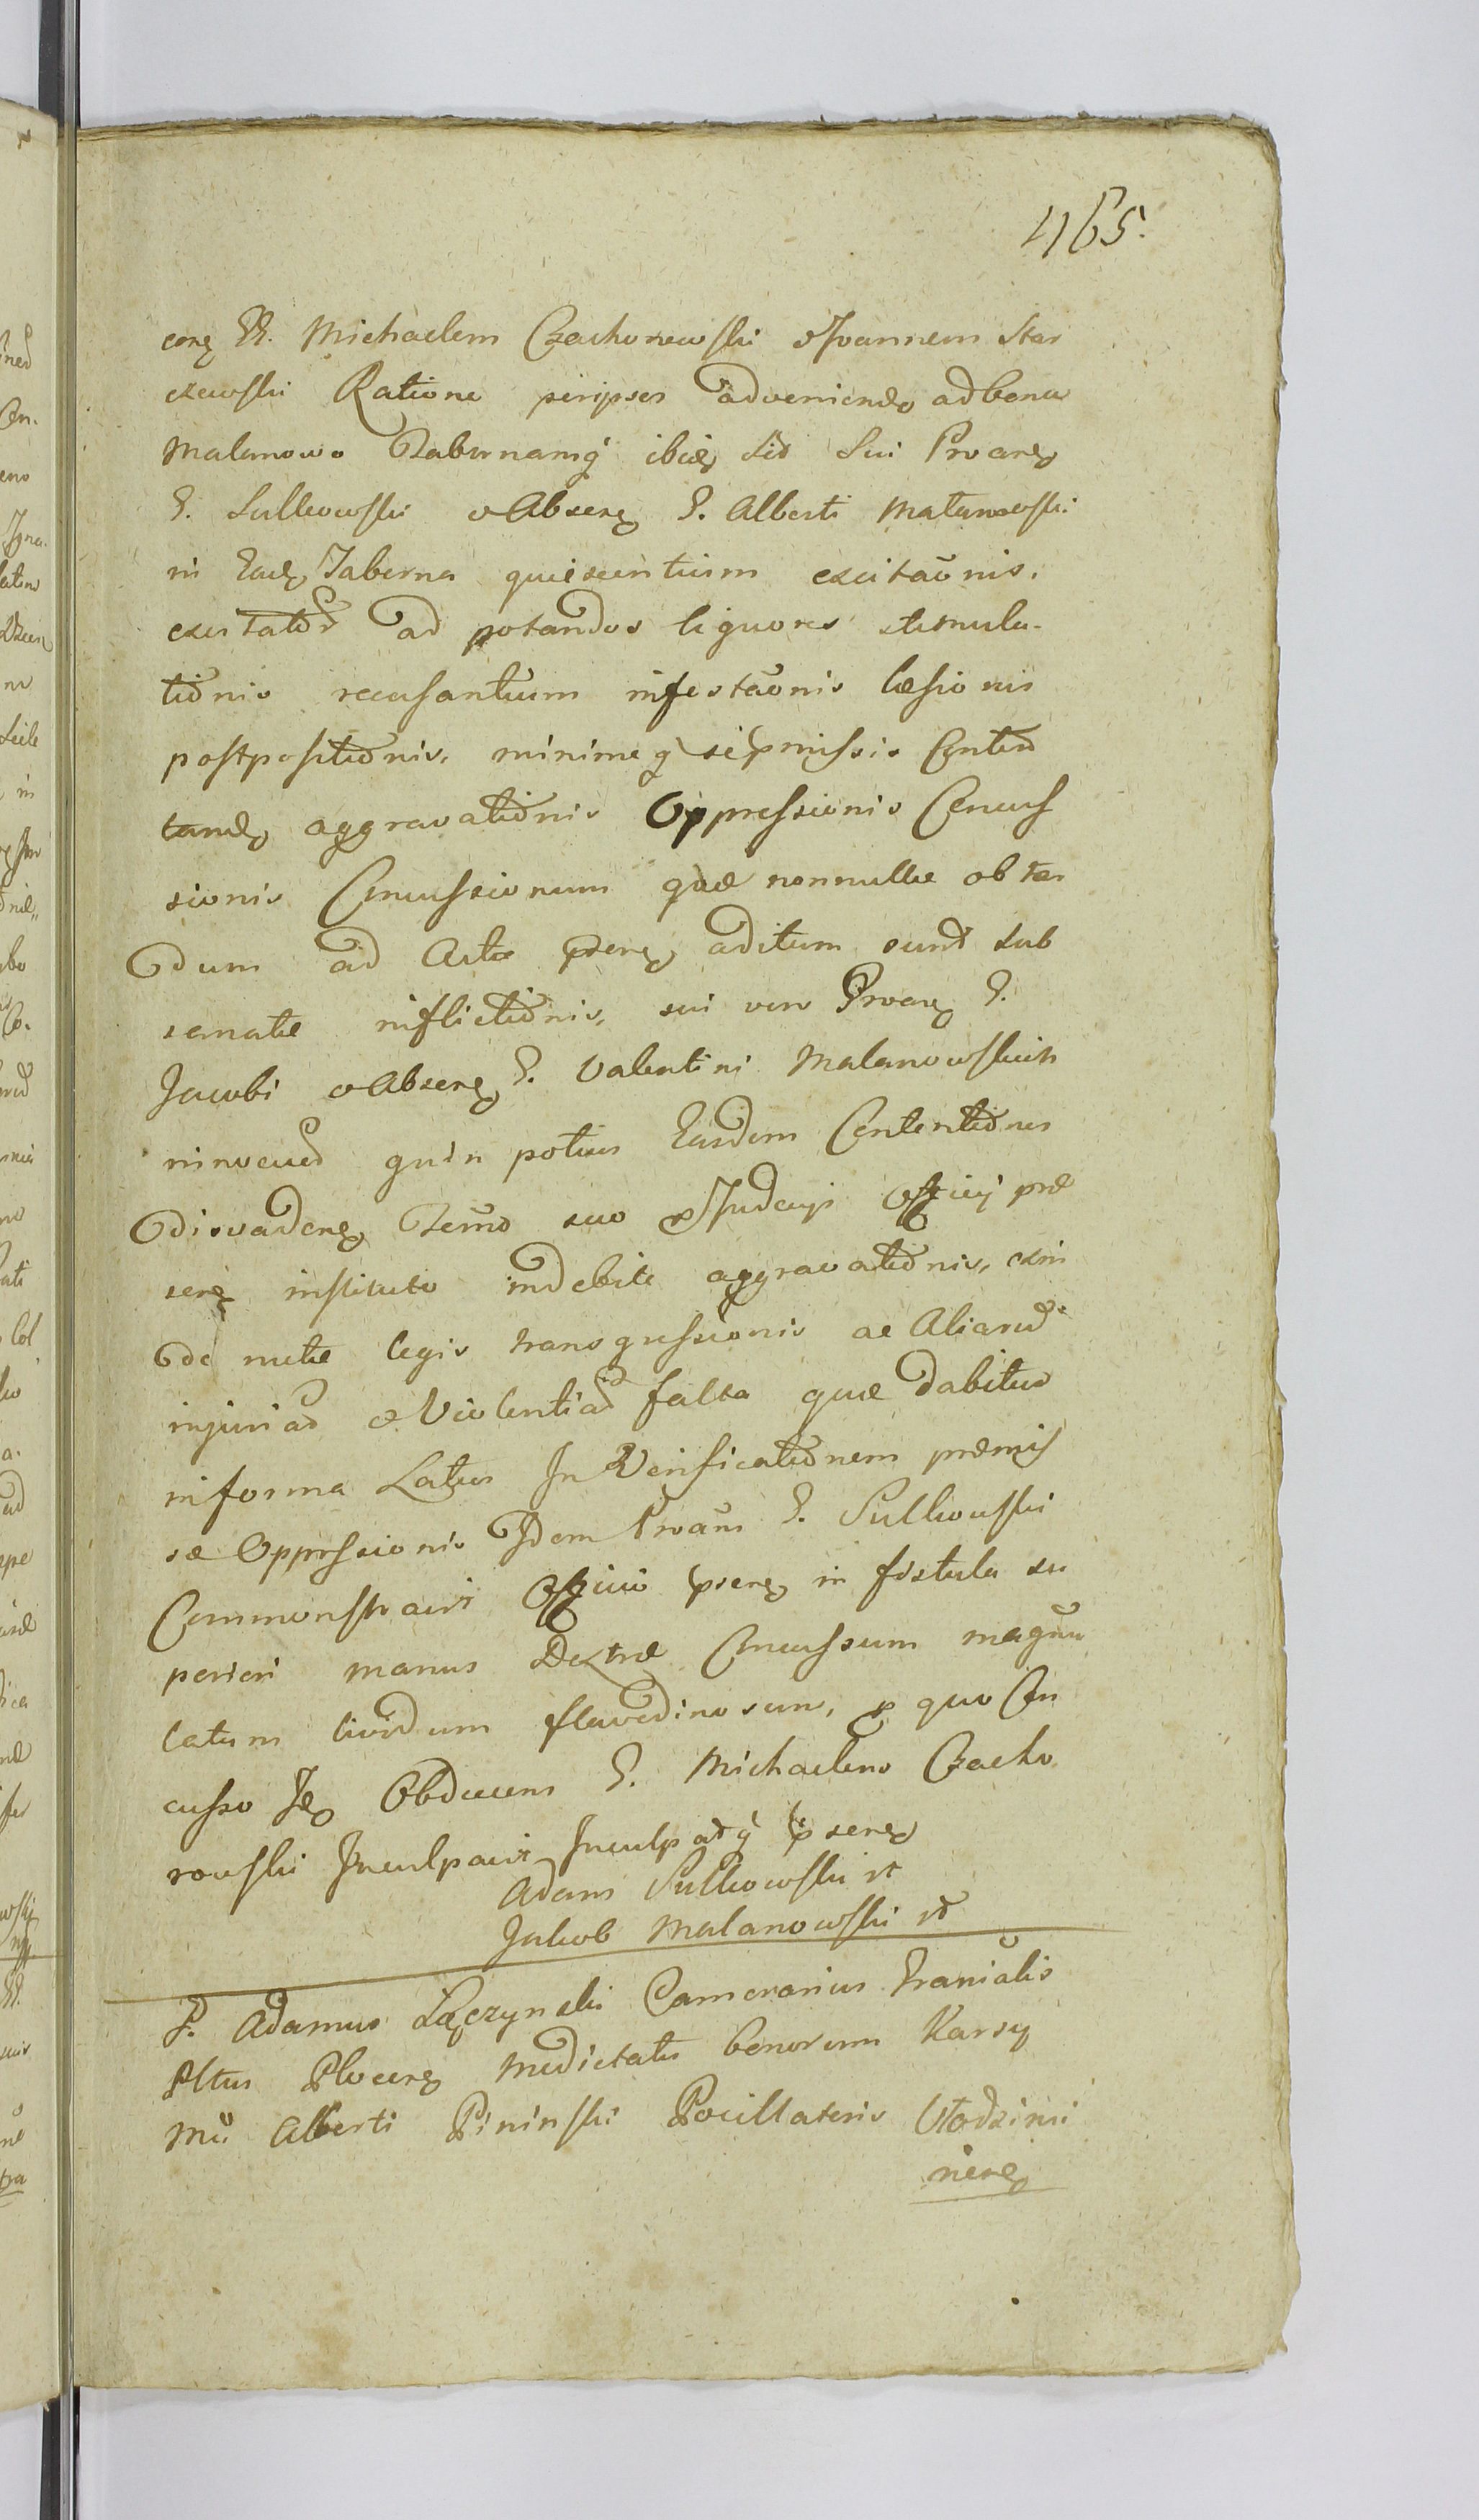 465.
conz GG. Michaelem Czachorowski & Joannem Star
czewski Ratione peripsos adveniendo ad bona
Malanowo Tabernamq ibidz Sui Provanz
G. Sulkowski & Absenz G. Alberti Malanowski
in Eadz Taberna quiescentium excitaonis,
excitator ad potandos liquores stimula-
tionis recusantium infestaonis læsionis
postpositionis, minime q se pmissis Conten
tandz aggravationis Oppressionis Concus
sionis Concussionum quæ nonnullæ obtar
dum ad Acta psenz aditum sunt sub
sanatæ inflictionis, sui vero Provanz G.
Jacobi & Absenz G. Valentini Malanowskich
quin potius Easdem Contentiones
disvadenz Termo suo & Judcij Officij præ
senz instituto indebite aggravationis, exin
de metæ legis transgressionis ac Aliaru
injuriar & Violentiar facta quæ dabitur
in forma Latius In Verificationem præmis
sæ Oppressionis Idem Provans G. Sulkowski
Commonstravit Officio psenz in fistula su
periori manus Dextræ Concussum magnu
latum lividum flavedinosum, p quo Con
cusso Idz Obducens G. Michaelem Czacho
rowski Inculpavit Inculpatq psenz
Adam Sulkowski
Jakub Malanowski
G. Adamus Łączynski Camerarius Granialis
Pltus Plocenz medietatis bonorum Karsy
Mci Alberti Pininski Pocillatoris Włodzimi
nenz